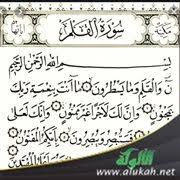 سورة القلم
بسم الله الرحمن الرحيم
ن والقلم وما يسطرون ما أنت بنعمة ربك
بمجنون وإن لك لأجرا غير ممنون وإنك لعلى
فستبصر ويبصرون بأييكم المفتون
الألوكة
www.alukah.net